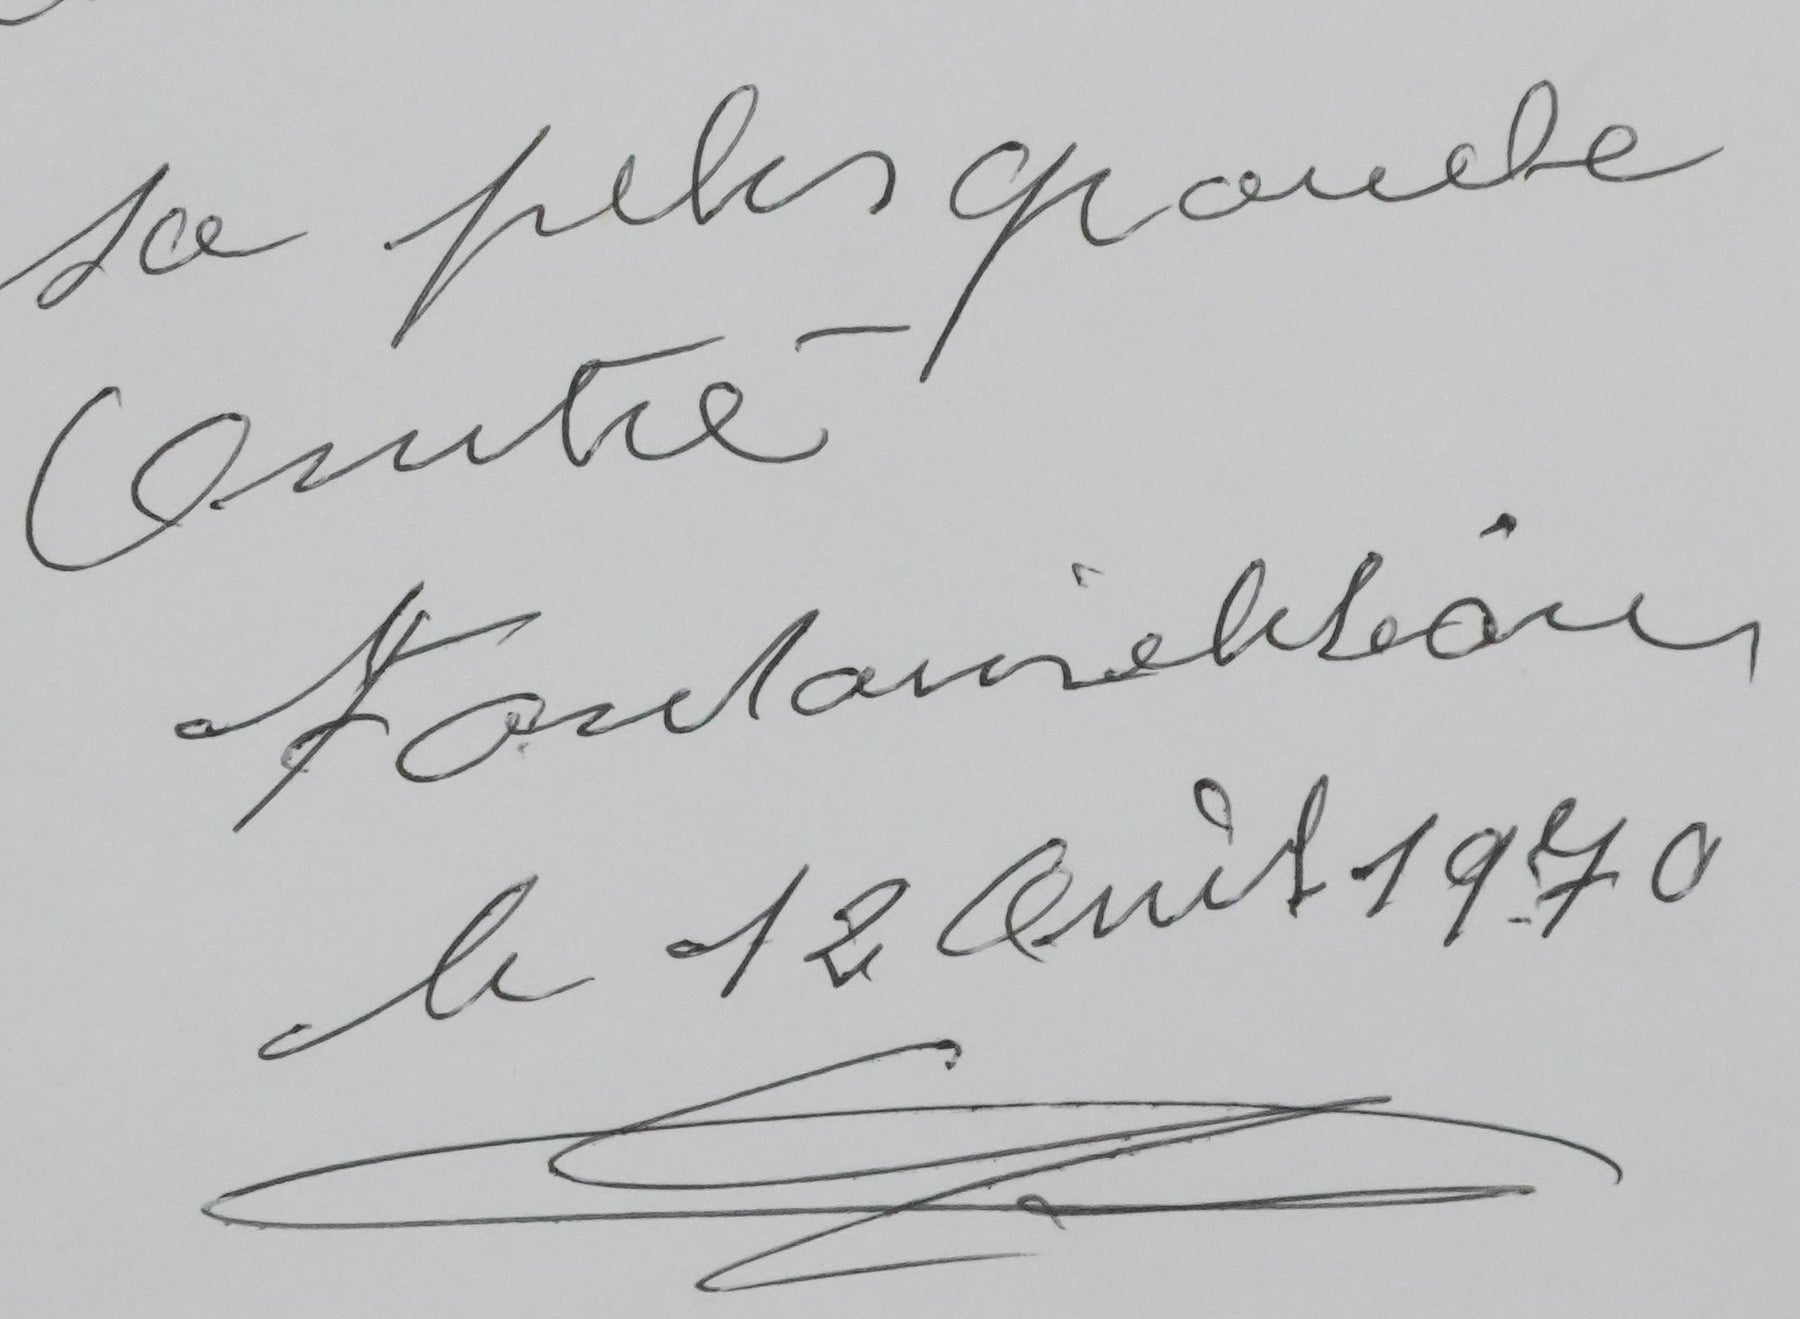 sa plus grande
Amitié
Fontainebleau,
le 12 Avril 1970